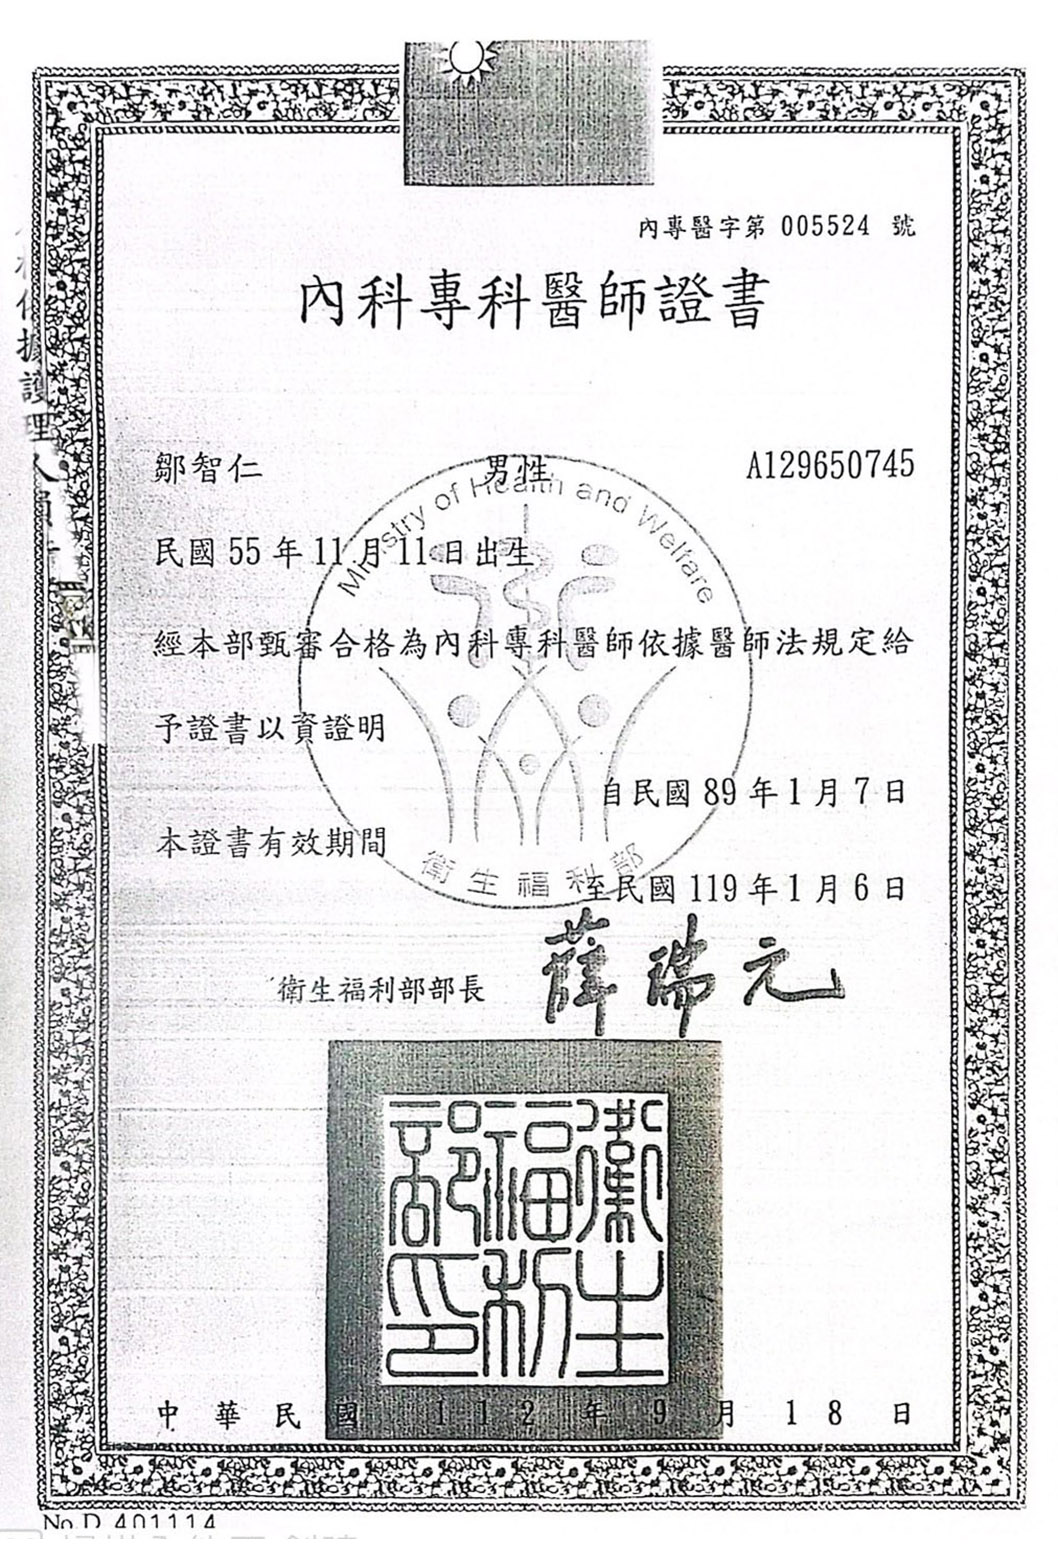 內專醫字第 005524 號
內科專科醫師證書
鄒智仁 男性 A129650745
民國 55 年 11 月 11 日出生
經本部甄審合格為內科專科醫師依據醫師法規定給
予證書以資證明
自民國 89 年 1 月 7 日
本證書有效期間
至民國 119 年 1 月 6 日
Ministry of Health and Welfare
衛生福利部
衛生福利部部長 薛瑞元
衛生福利部印
中華民國 112 年 9 月 18 日
No.D 401114
據護理人員